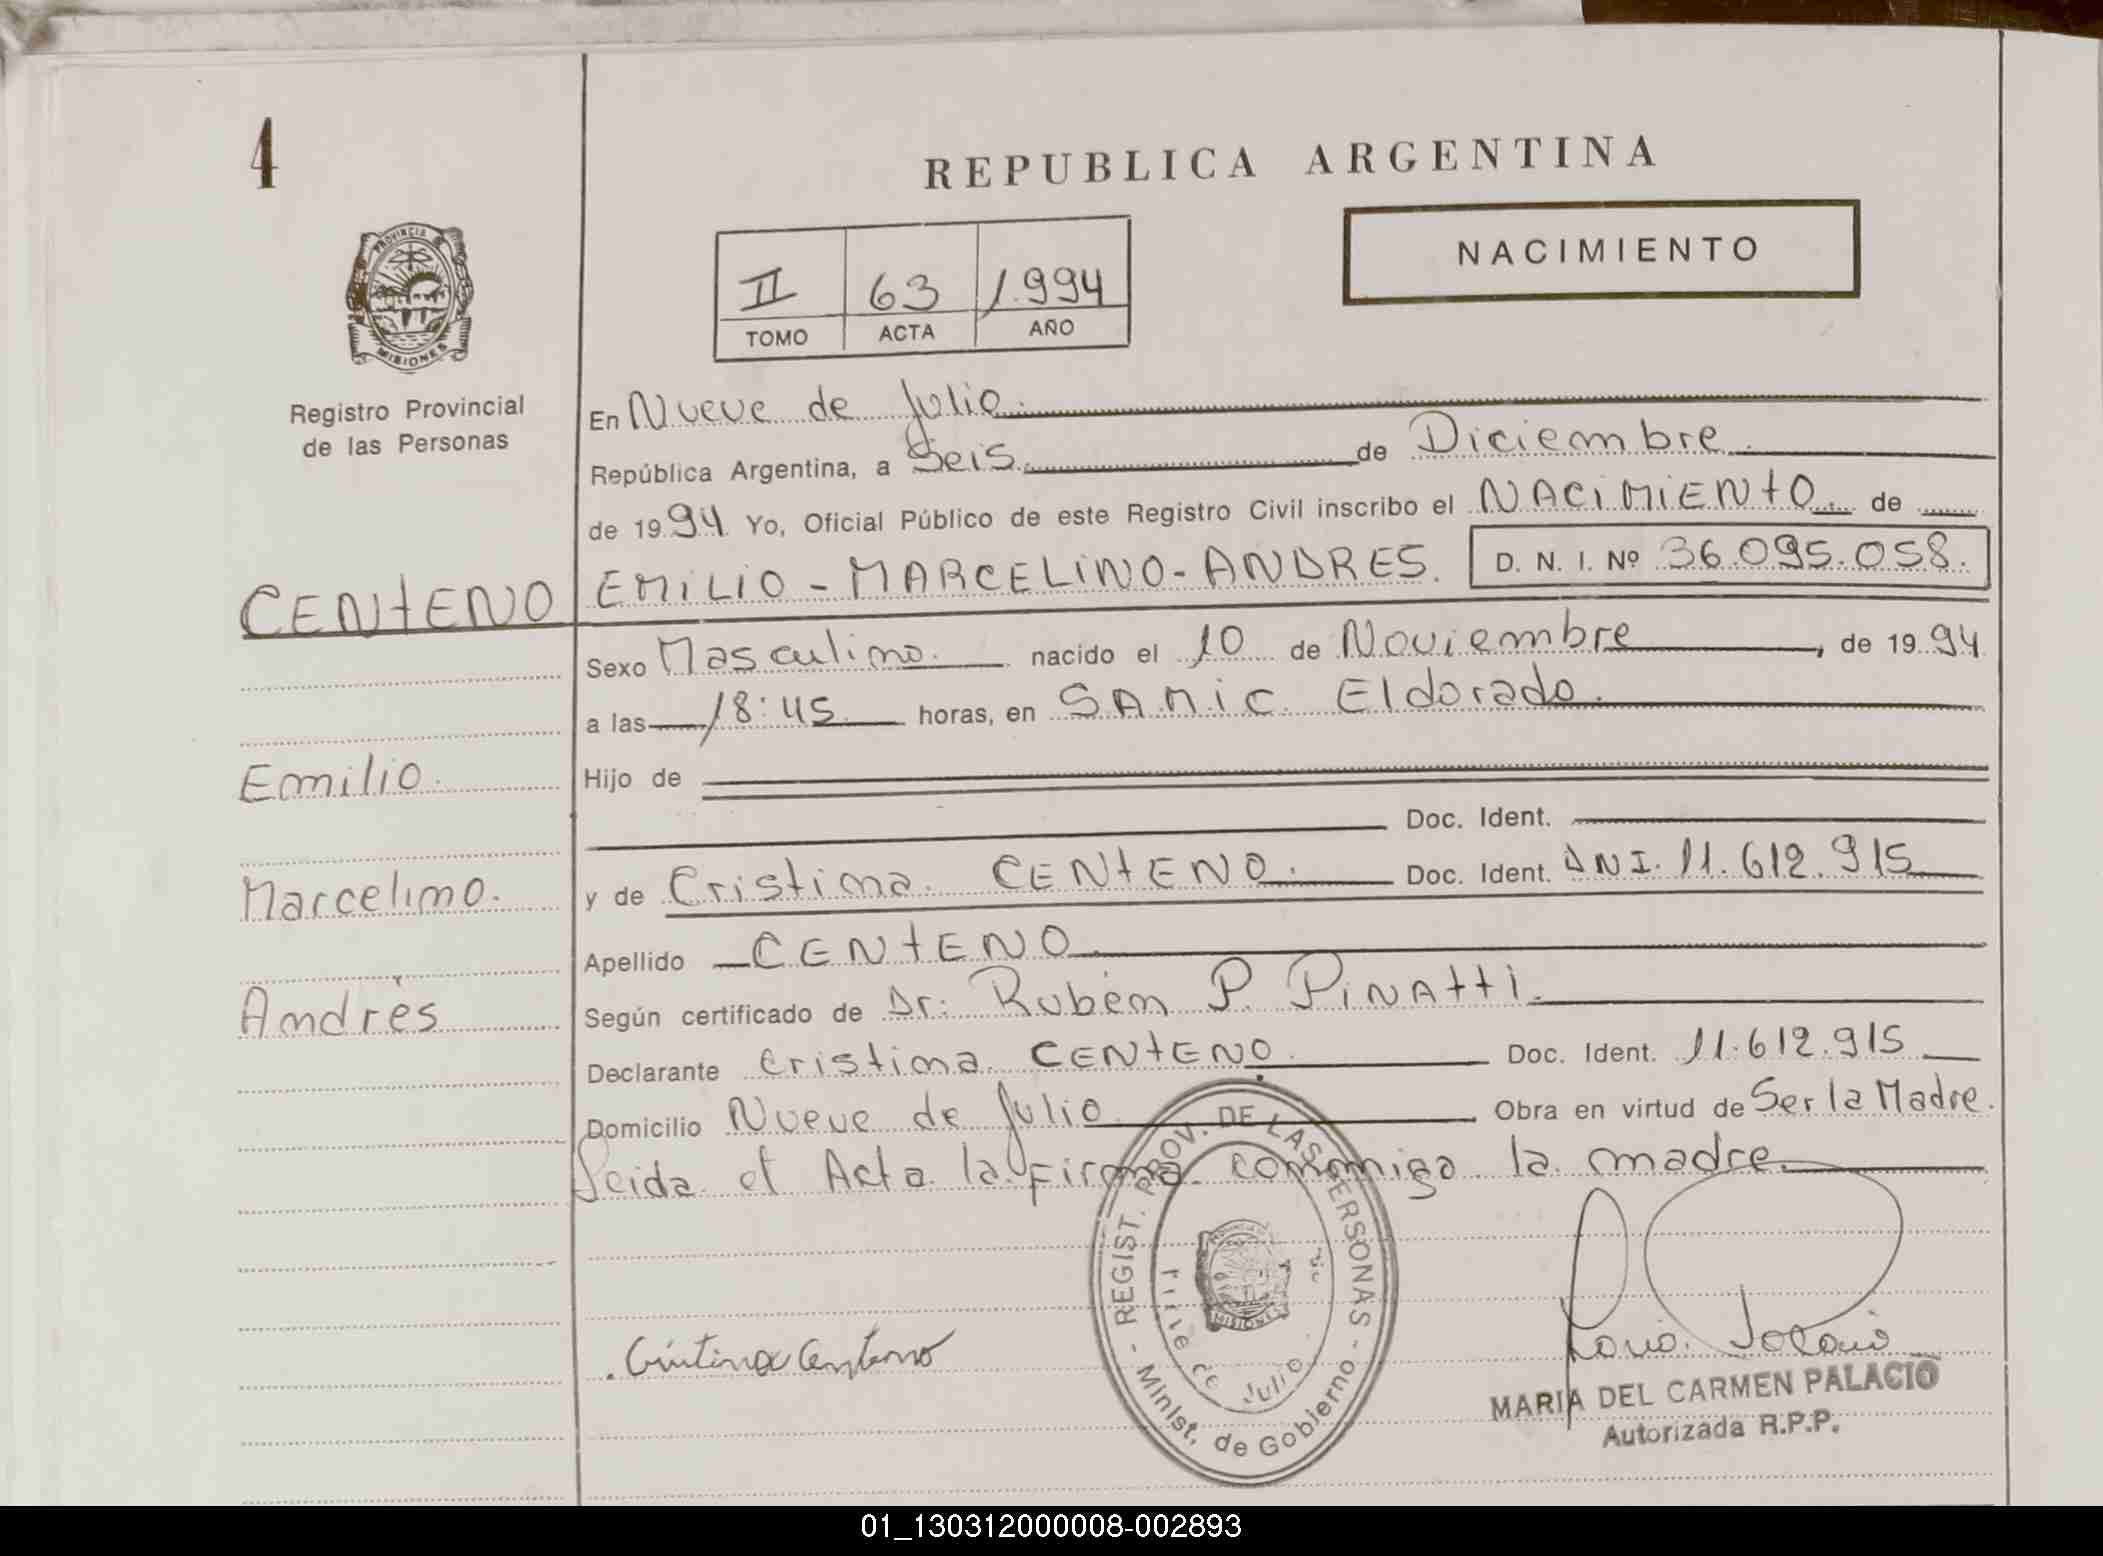 4
REPUBLICA ARGENTINA
NACIMIENTO
II 63 1.994
TOMO ACTA AÑO
PROVINCIA DE
MISIONES
Registro Provincial
de las Personas
En Nueve de Julio.
República Argentina, a Seis de Diciembre
de 1994 Yo, Oficial Público de este Registro Civil inscribo el NACIMIENTO de
CENTENO EMILIO - MARCELINO - ANDRES. D. N. I. Nº 36.095.058.
Sexo Masculino. nacido el 10 de Noviembre, de 1994
a las 18:45 horas, en SAMIC Eldorado.
Emilio.
Hijo de
Doc. Ident.
Marcelino.
y de Cristina CENTENO. Doc. Ident. DNI. 11.612.915
Apellido CENTENO
Andrés
Según certificado de Dr: Rubén P. PINATTI.
Declarante Cristina CENTENO. Doc. Ident. 11.612.915
Domicilio Nueve de Julio Obra en virtud de Ser la Madre.
Leida el Acta la firma conmigo la madre.
- REGIST. PROV. DE LAS PERSONAS -
Minist. de Gobierno
de Julio
MISIONES
Cristina Centeno
MARIA DEL CARMEN PALACIO
Autorizada R.P.P.
01_130312000008-002893